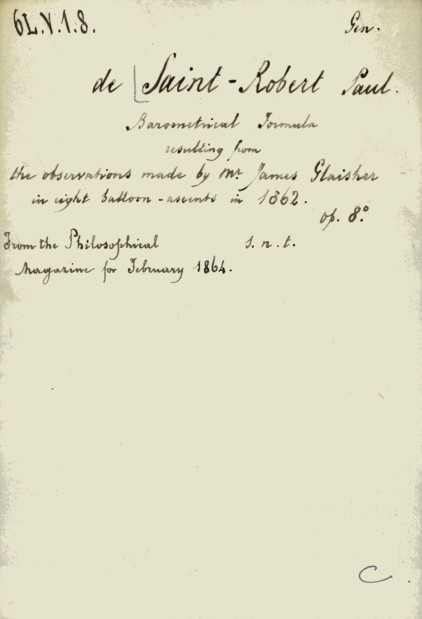 6L.V.1.8.
Gen.
de [Saint-Robert Paul.
Barometrical Formula
resulting from
the observations made by Mr James Glaisher
in eight balloon-ascents in 1862.
op. 8.º
From the Philosophical s. n. t.
Magazine for February 1864.
C